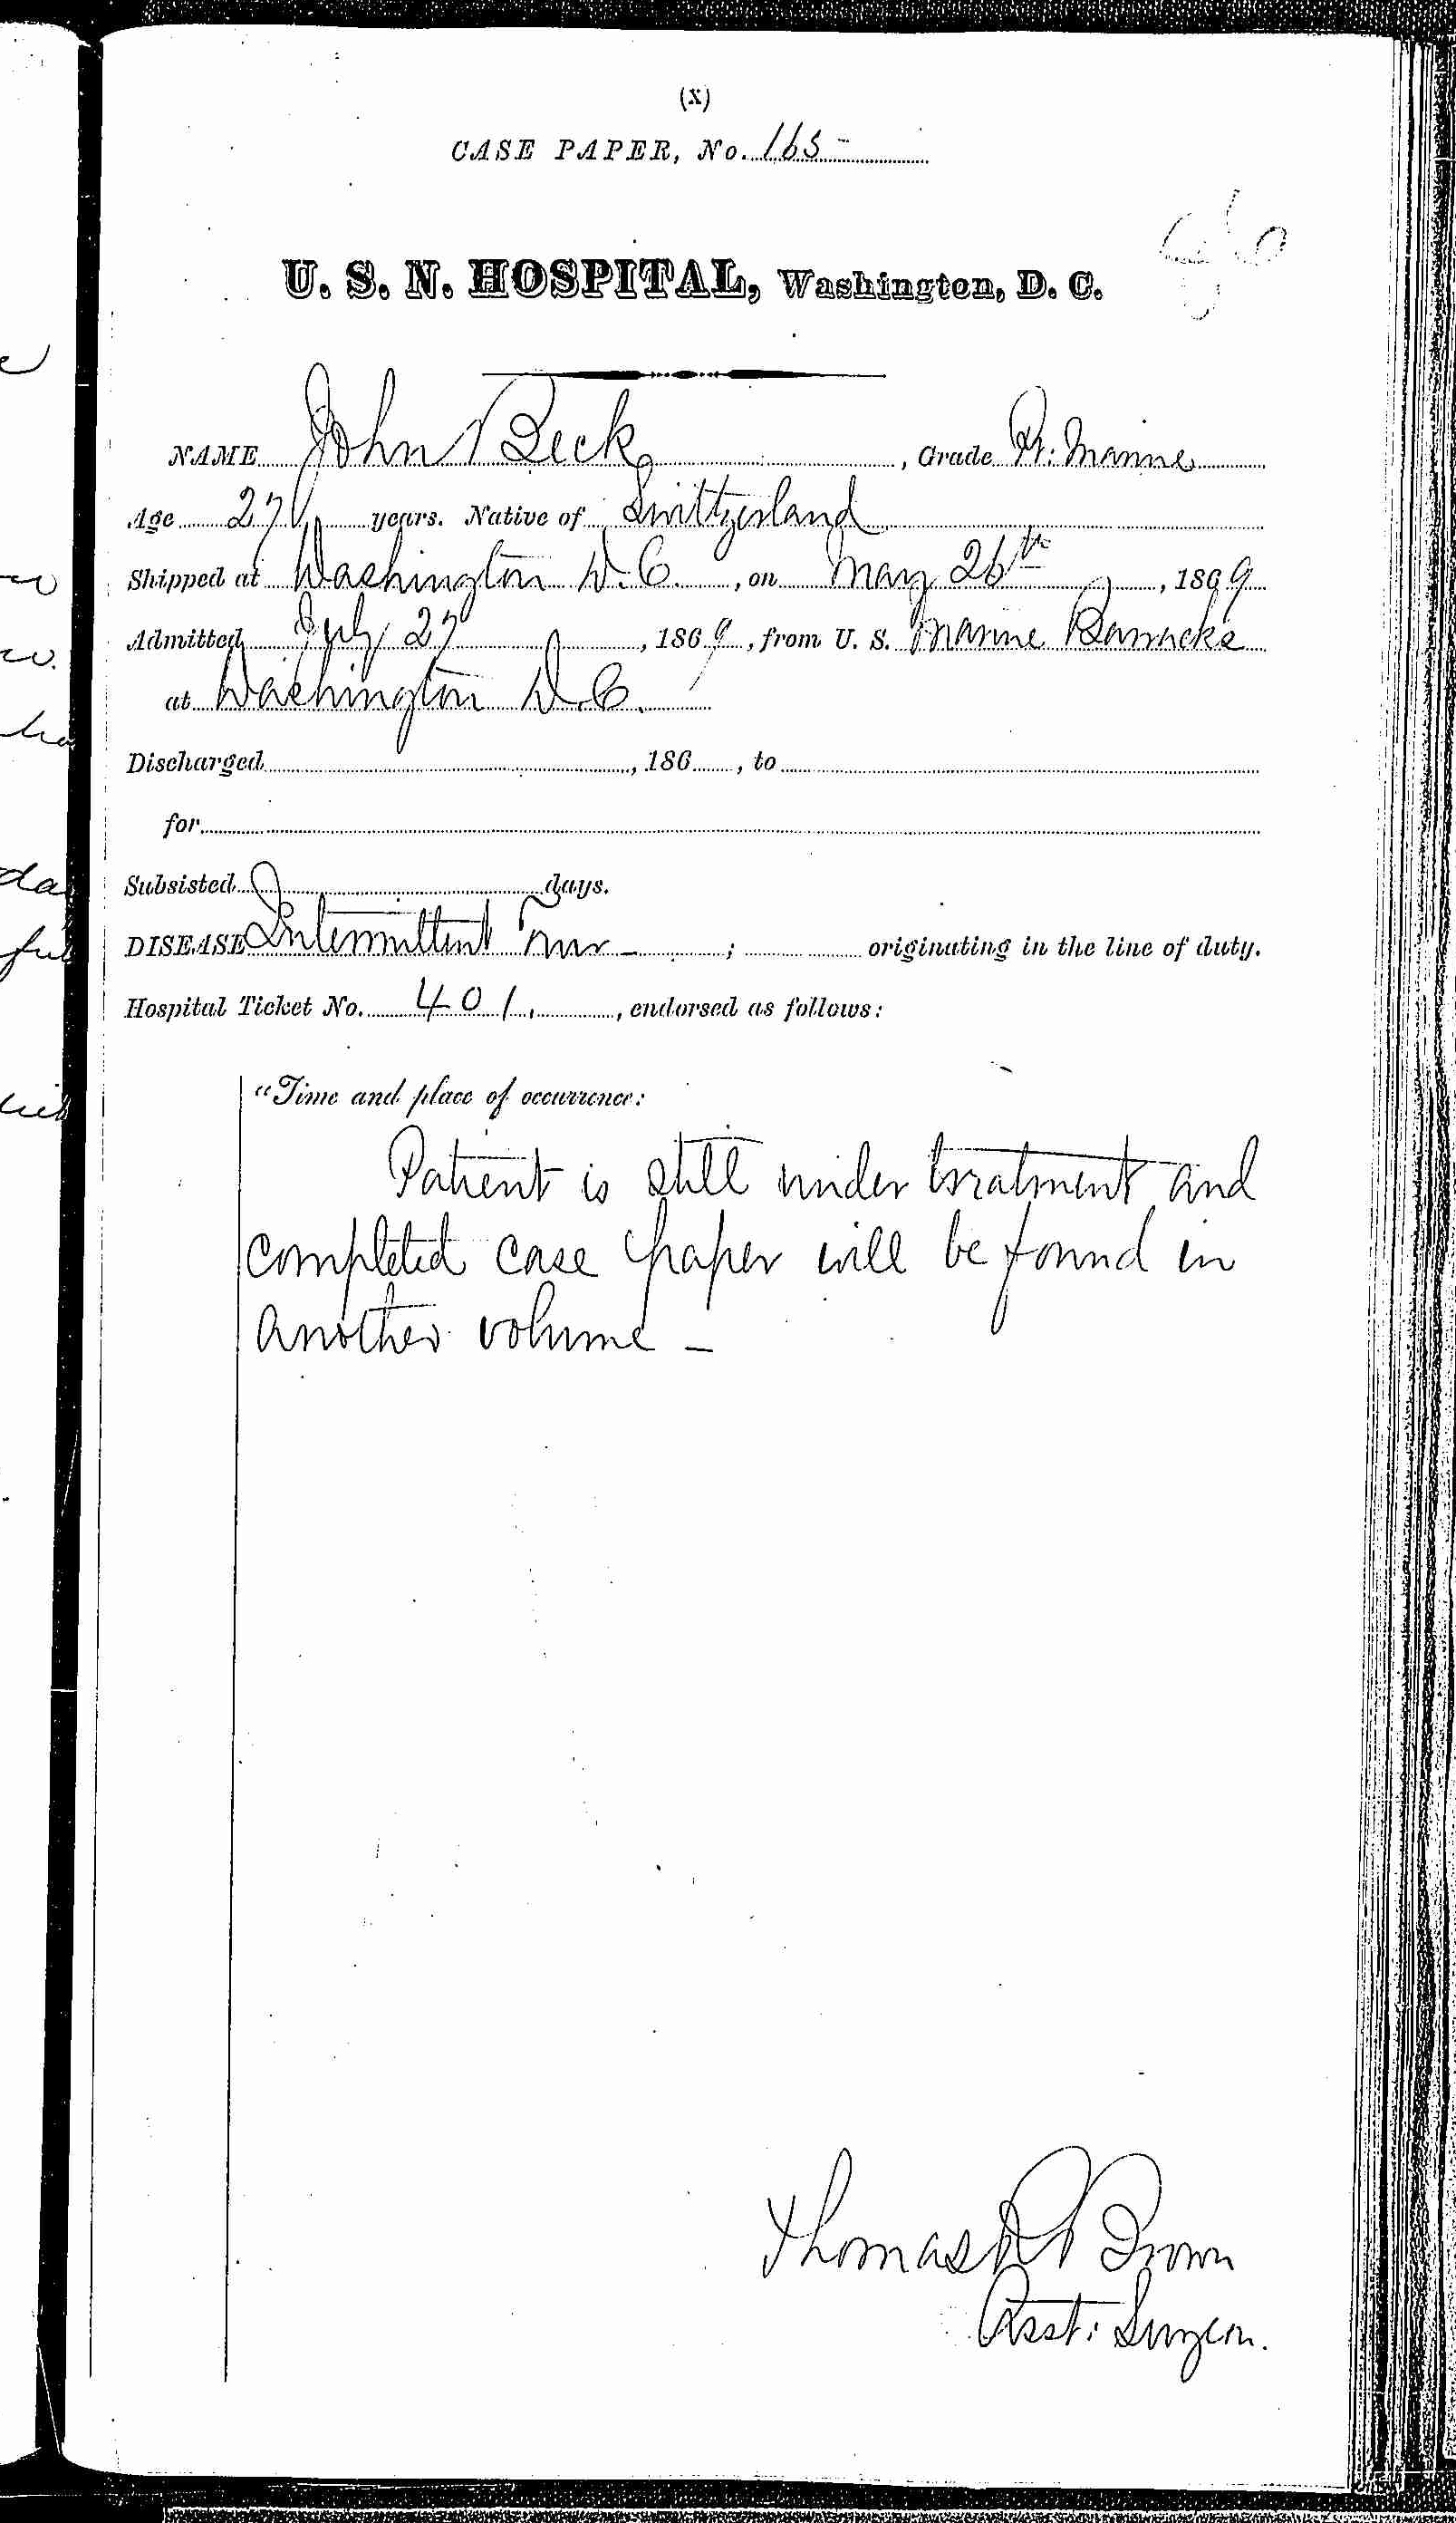 (X)
CASE PAPER, No. 165-
U. S. N. HOSPITAL, Washington, D. C.
NAME John Beck, Grade Pr: Marine
Age 27 years. Native of Switzerland
Shipped at Washington D.C., on May 26th, 1869
Admitted July 27, 1869, from U. S. Marine Barracks
at Washington D.C.
Discharged, 186, to
for
Subsisted days.
DISEASE Intermittent Fever -; originating in the line of duty.
Hospital Ticket No. 401., endorsed as follows:
"Time and place of occurrence:
Patient is still under treatment and
completed case paper will be found in
another volume -
Thomas Brown
Asst: Surgeon.